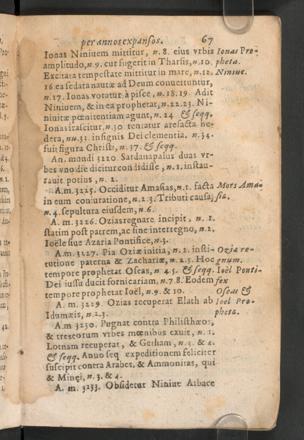 per annos expansos. 67
Ionas Niniuem mittitur, n.8. eius vrbis Ionas Pro-
amplitudo, n.9. cur fugerit in Tharsis, n.10. pheta.
Excitata tempestate mittitur in mare, n.12. Niniue.
16 ea sedata nautæ ad Deum conuertuntur,
n.17. Ionas votatur à pisce, n.18.19. Adit
Niniuem, & in ea prophetat, n.22.23. Ni-
niuitæ pœnitentiam agunt, n.24 & seqq.
Ionas irascitur, n.30 tentatur arefacta he-
dera, nu.31. insignis Dei clementia. n.34.
fuit figura Christi, n.37. & seqq.
An. mundi 3210. Sardanapalus duas vr-
bes vno die dicitur condidisse, n.1. instau-
rauit potius, n.2.
A.m 3225. Occiditur Amasias, n.1. facta Mors Ama-
in eum coniuratione, n.2.3. Tributi causa, sia.
n.4. sepultura eiusdem, n.6.
A.m. 3226. Ozias regnare incipit, n.1.
statim post patrem, ac sine interregno, n.2.
Ioële siue Azaria Pontifice, n.3.
A.m. 3227. Pia Oziæ initia, n.2. insti- Ozia re-
tutione paterna & Zachariæ, n.2.3. Hoc gnum.
tempore prophetat Oseas, n.4.5. & seqq. Ioël Ponti-
Dei iussu ducit fornicariam, n.7.8. Eodem fex
tempore prophetat Ioël, n.9. & 10. Oseas &
A.m. 3229. Ozias recuperat Elath ab Ioel Pro-
Idumæis, n.2.3. pheta.
A.m 3230. Pugnat contra Philisthæos,
& trecorum vrbes mœnibus exuit, n.1.
Lotnam recuperat, & Getham, n.3. & 4.
& seqq. Anno seq. expeditionem feliciter
suscipit contra Arabes, & Ammonitas, qui
& Minęi, n.3. & 4.
A. m. 3233. Obsidetur Niniue Arbace